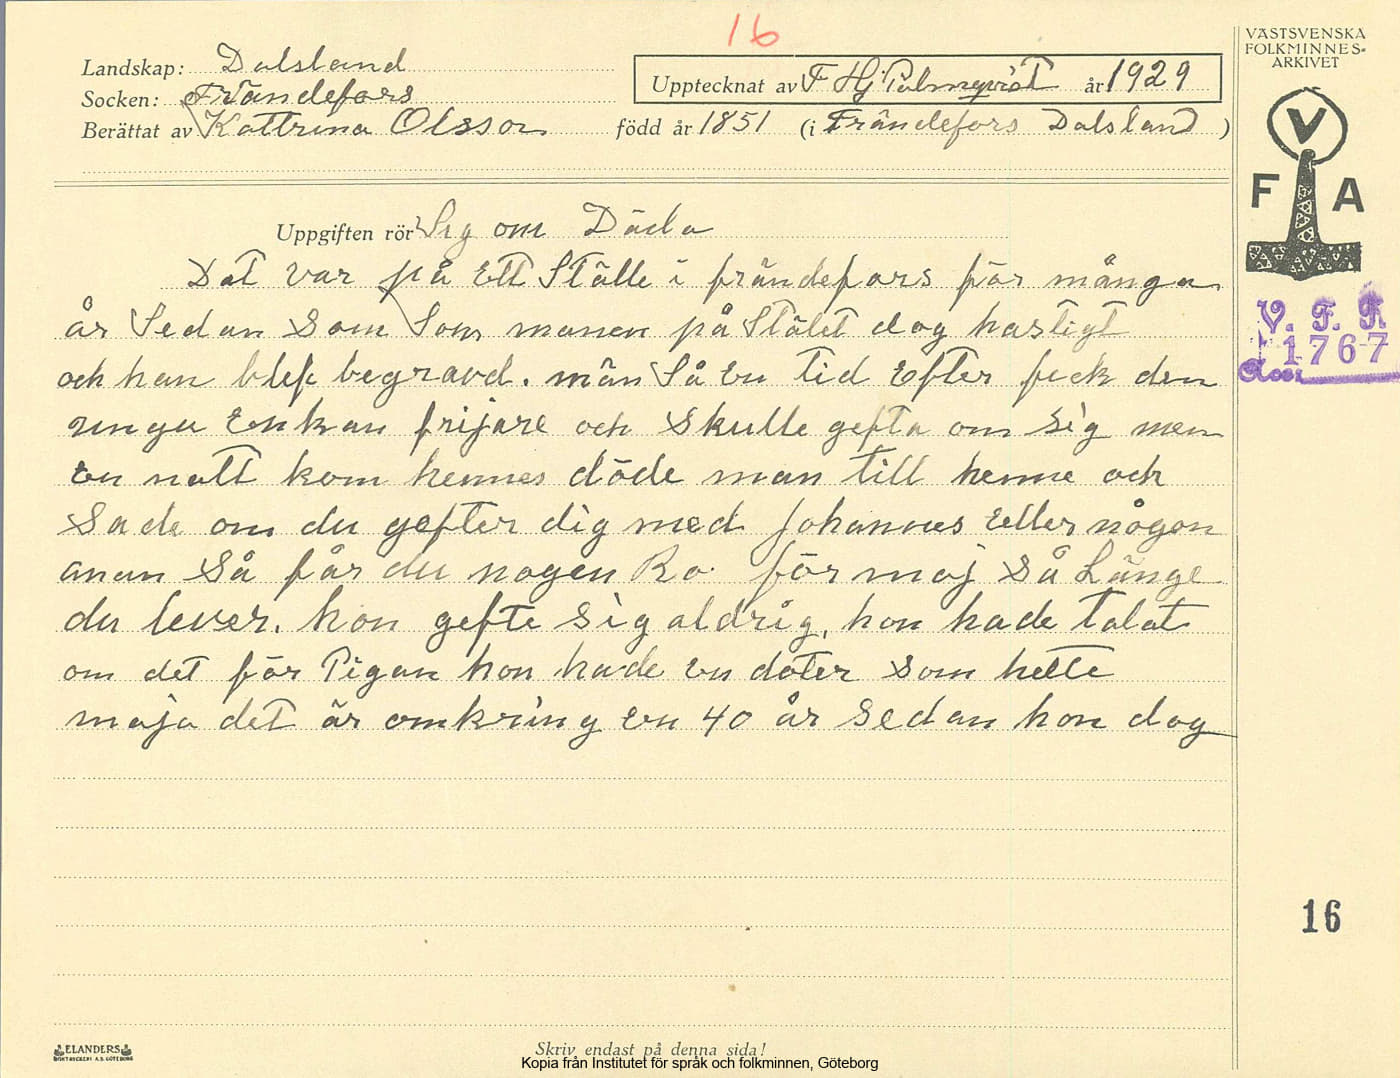 16
Landskap: Dalsland
Socken: Frändefors
Upptecknat av F Hj Palmqvist år 1929
Berättat av Kattrina Olsson född år 1851 (i Frändefors Dalsland)
VÄSTSVENSKA
FOLKMINNES-
ARKIVET
V
F A
Uppgiften rör Seg om Däda
Dat var på Ett Ställe i frändeforsför många
år Sedan Som Som manen på Stälet dog hastigt
och han blef begravd. män Så En tid Efter feck den
unga Enkan frijare och Skulle gefta om Sig men
En natt kom hennes döde man till henne och
Sade om du gefter dig med Johannes Eller någon
anan Så får du nogen Ro för maj Så Länge
du lever. hon gefte Sig aldrig, hon hade talat
om det för Pigan hon hade En doter Som hette
maja det är omkring En 40 år Sedan hon dog
V. F. F.
1767
16
ELANDERS
BOKTRYCKERI A.B. GÖTEBORG
Skriv endast på denna sida!
Kopia från Institutet för språk och folkminnen, Göteborg